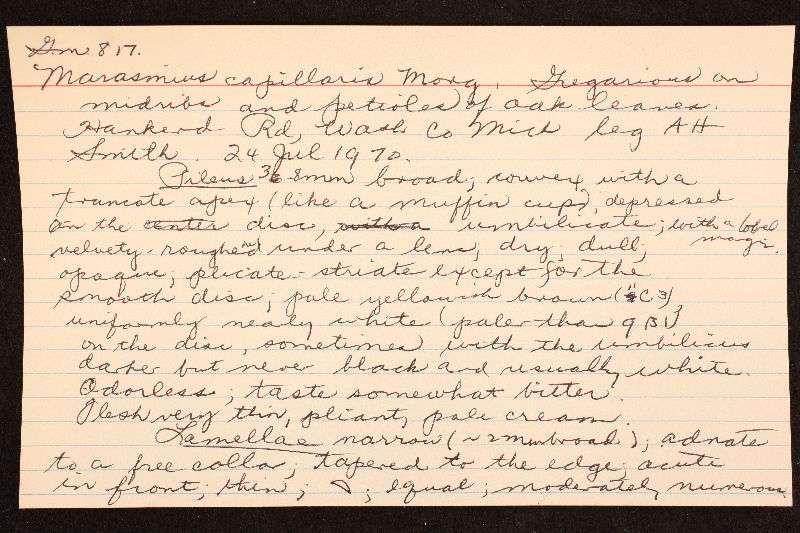 G.m. 817.
Marasmius capillaris Morg. Gregarious on
midribs and petioles of oak leaves.
Hankerd Rd, Wash Co Mich leg AH
Smith. 24 Jul 1970.
Pileus 3-8mm broad; convex with a
truncate apex (like a muffin cup), depressed
on the center disc, with a umbilicate; with a lobed
margin.
velvety-roughened under a lens; dry; dull;
opaque; plicate-striate except for the
smooth disc; pale yellowish brown (C3),
uniformly nearly white (paler than 9B1)
on the disc, sometimes with the umbilicus
darker but never black and usually white.
Odorless; taste somewhat bitter.
Flesh very thin, pliant, pale cream.
Lamellae narrow (~2mm broad); adnate
to a free collar; tapered to the edge; acute
in front; thin; equal; moderately numerous